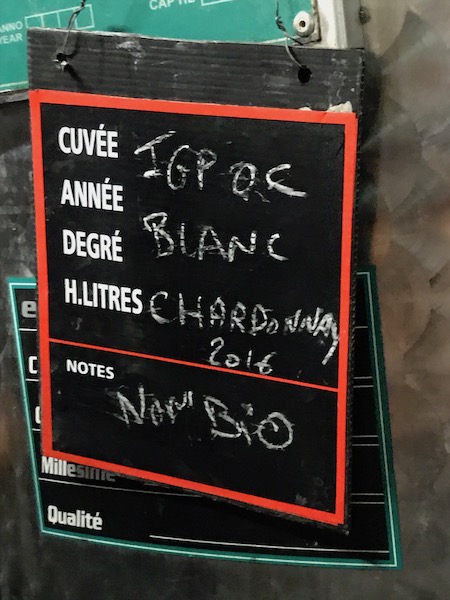 ANNO
YEAR
CUVÉE IGP OC
ANNÉE
DEGRÉ BLANC
H.LITRES CHARDONNAY
2016
NOTES
Non BiO
Millesime
Qualité